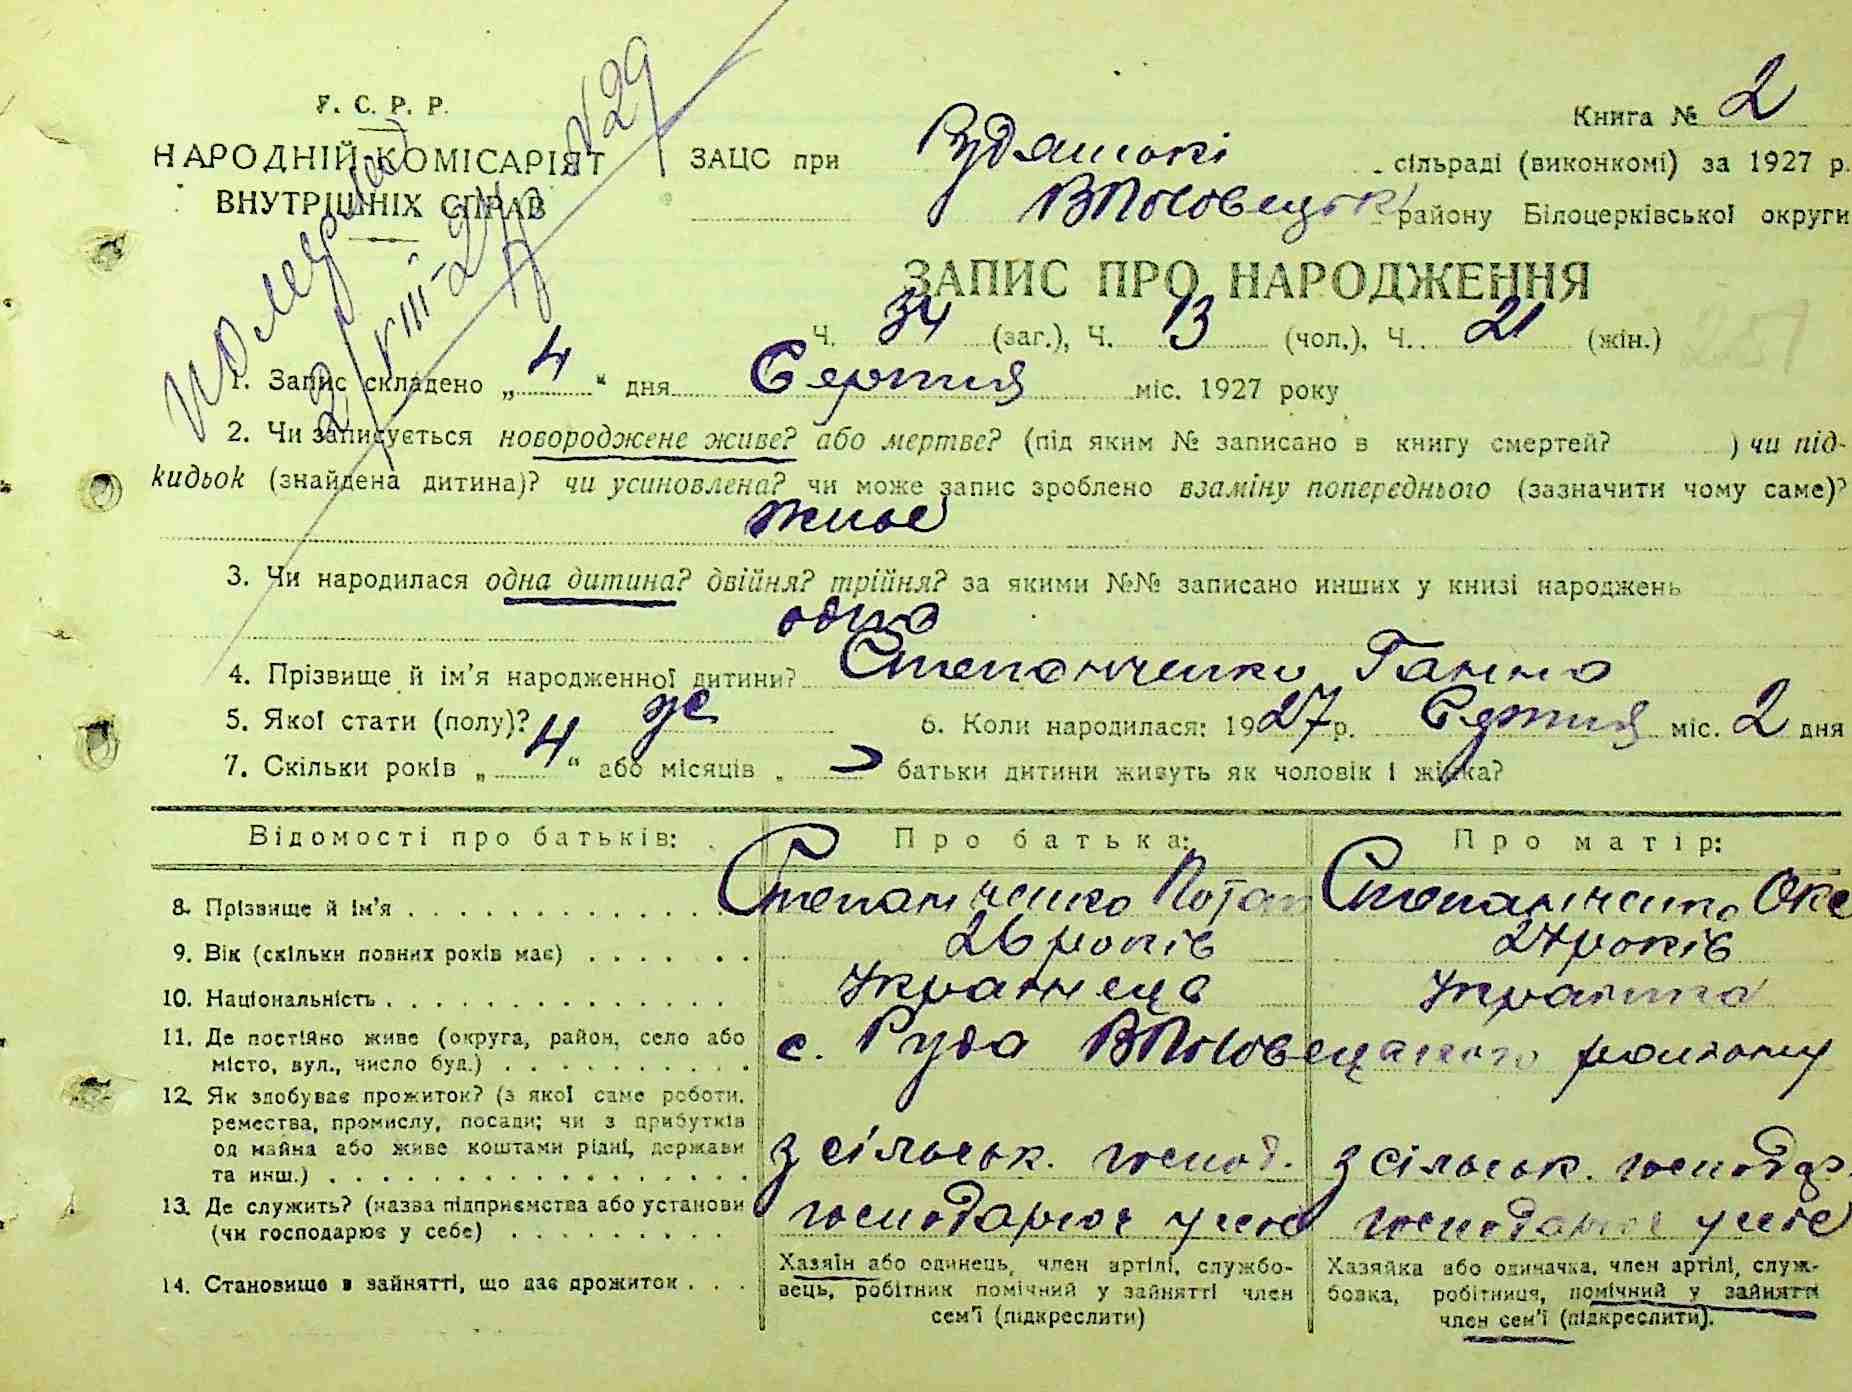 У. С. Р. Р.
НАРОДНІЙ КОМІСАРІЯТ
ВНУТРІШНІХ СПРАВ
№ 29
Книга № 2
ЗАЦС при Рудянські сільраді (виконкомі) за 1927 р.
ВПоловецьк району Білоцерківської округи
ЗАПИС ПРО НАРОДЖЕННЯ
Ч. 34 (заг.), Ч. 13 (чол.), Ч. 21 (жін.)
251
1. Запис складено „ 4 “ дня Серпня міс. 1927 року
2. Чи записується новороджене живе? або мертве? (під яким № записано в книгу смертей? ) чи під-
кидьок (знайдена дитина)? чи усиновлена? чи може запис зроблено взаміну попереднього (зазначити чому саме)?
живе
3. Чи народилася одна дитина? двійня? трійня? за якими №№ записано инших у книзі народжень
одна
4. Прізвище й ім'я народженної дитини? Степанченко Ганна
5. Якої стати (полу)? ж 6. Коли народилася: 1927 р. Серпня міс. 2 дня
7. Скільки років „ 4 “ або місяців „ батьки дитини живуть як чоловік і жінка?
Відомості про батьків: Про батька: Про матір:
8. Прізвище й ім'я Степанченко Потап Степанченко Окс
9. Вік (скільки повних років має) 26 років 24 років
10. Національність Українець Українка
11. Де постійно живе (округа, район, село або
місто, вул., число буд.) с. Руда ВПоловецького району
12. Як здобуває прожиток? (з якої саме роботи,
ремества, промислу, посади; чи з прибутків
од майна або живе коштами рідні, держави
та инш.) з сільськ. господ. з сільськ. господар.
13. Де служить? (назва підприємства або установи
(чи господарює у себе) господарює у себе господарює у себе
14. Становище в зайнятті, що дає дрожиток
Хазяїн або одинець, член артілі, службо-
вець, робітник помічний у зайнятті член
сем'ї (підкреслити)
Хазяйка або одиначка, член артілі, служ-
бовка, робітниця, помічний у зайнятті
член сем'ї (підкреслити).